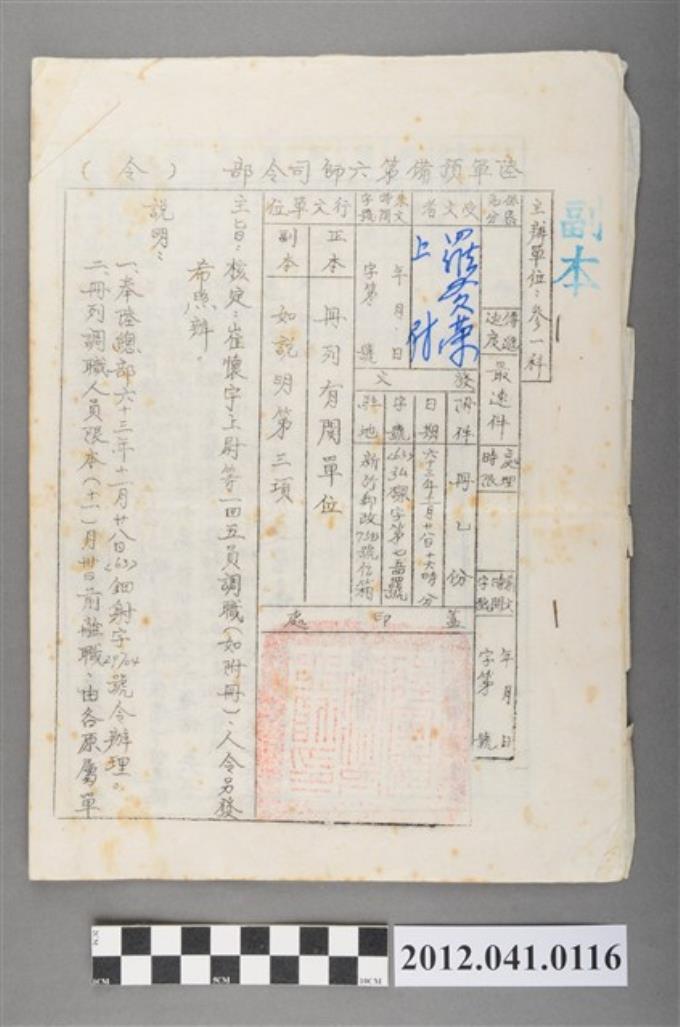 陸軍預備第六師司令部（令）
副本
主辦單位：參一科
保密區分
傳遞速度
最速件
處理時限
來文時間字號
年 月 日
字第 號
受文者
羅文榮
上尉
來文時間字號
年 月 日
字第 號
發文
附件
冊乙份
日期
六十三年十一月廿八日十六時 分
字號
駐地
行文單位
正本
冊列有關單位
副本
如說明第三項
蓋印處
主旨：核定：崔懷宇上尉等一四五員調職（如附冊）、人令另發
希照辦。
說明：
一、奉陸總部六十三年十一月廿八日(63)鈿射字29764號令辦理。
二、冊列調職人員限本（十一）月卅日前離職、由各原屬單
2CM
0CM
5CM
10CM
2012.041.0116